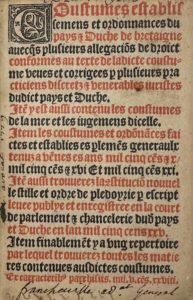 Coustumes establis
semens et ordonnances du
pays & Duche de bretaigne
avecq̄s plusieurs allegaciōs de droict
conformes au texte de ladicte coustu
me veues et corrigees p plusieurs pra
cticiens discretz & venerables iuristes
dudict pays et Duche.
Itē y est aussi contenu les coustumes
de la mer et les iugemens dicelle.
Item les coustumes et ordōnāces fai
ctes et establies es plemēs generaulx
tenuz a vēnes es ans mil cinq cēs & x
mil cinq cēs & xvi Et mil cinq cēs xxi.
Itē aussi trouverez la institucio nouvel
le stille et ordre de pledoyrie & escript
leuee publye et enregistree en la court
de parlement & chancelerie dud pays
et Duche en lan mil cinq cens xxv.
Item finablemēt y a vng repertoire
par lequel trouverez toutes les matie
res contenues ausdictes coustumes.